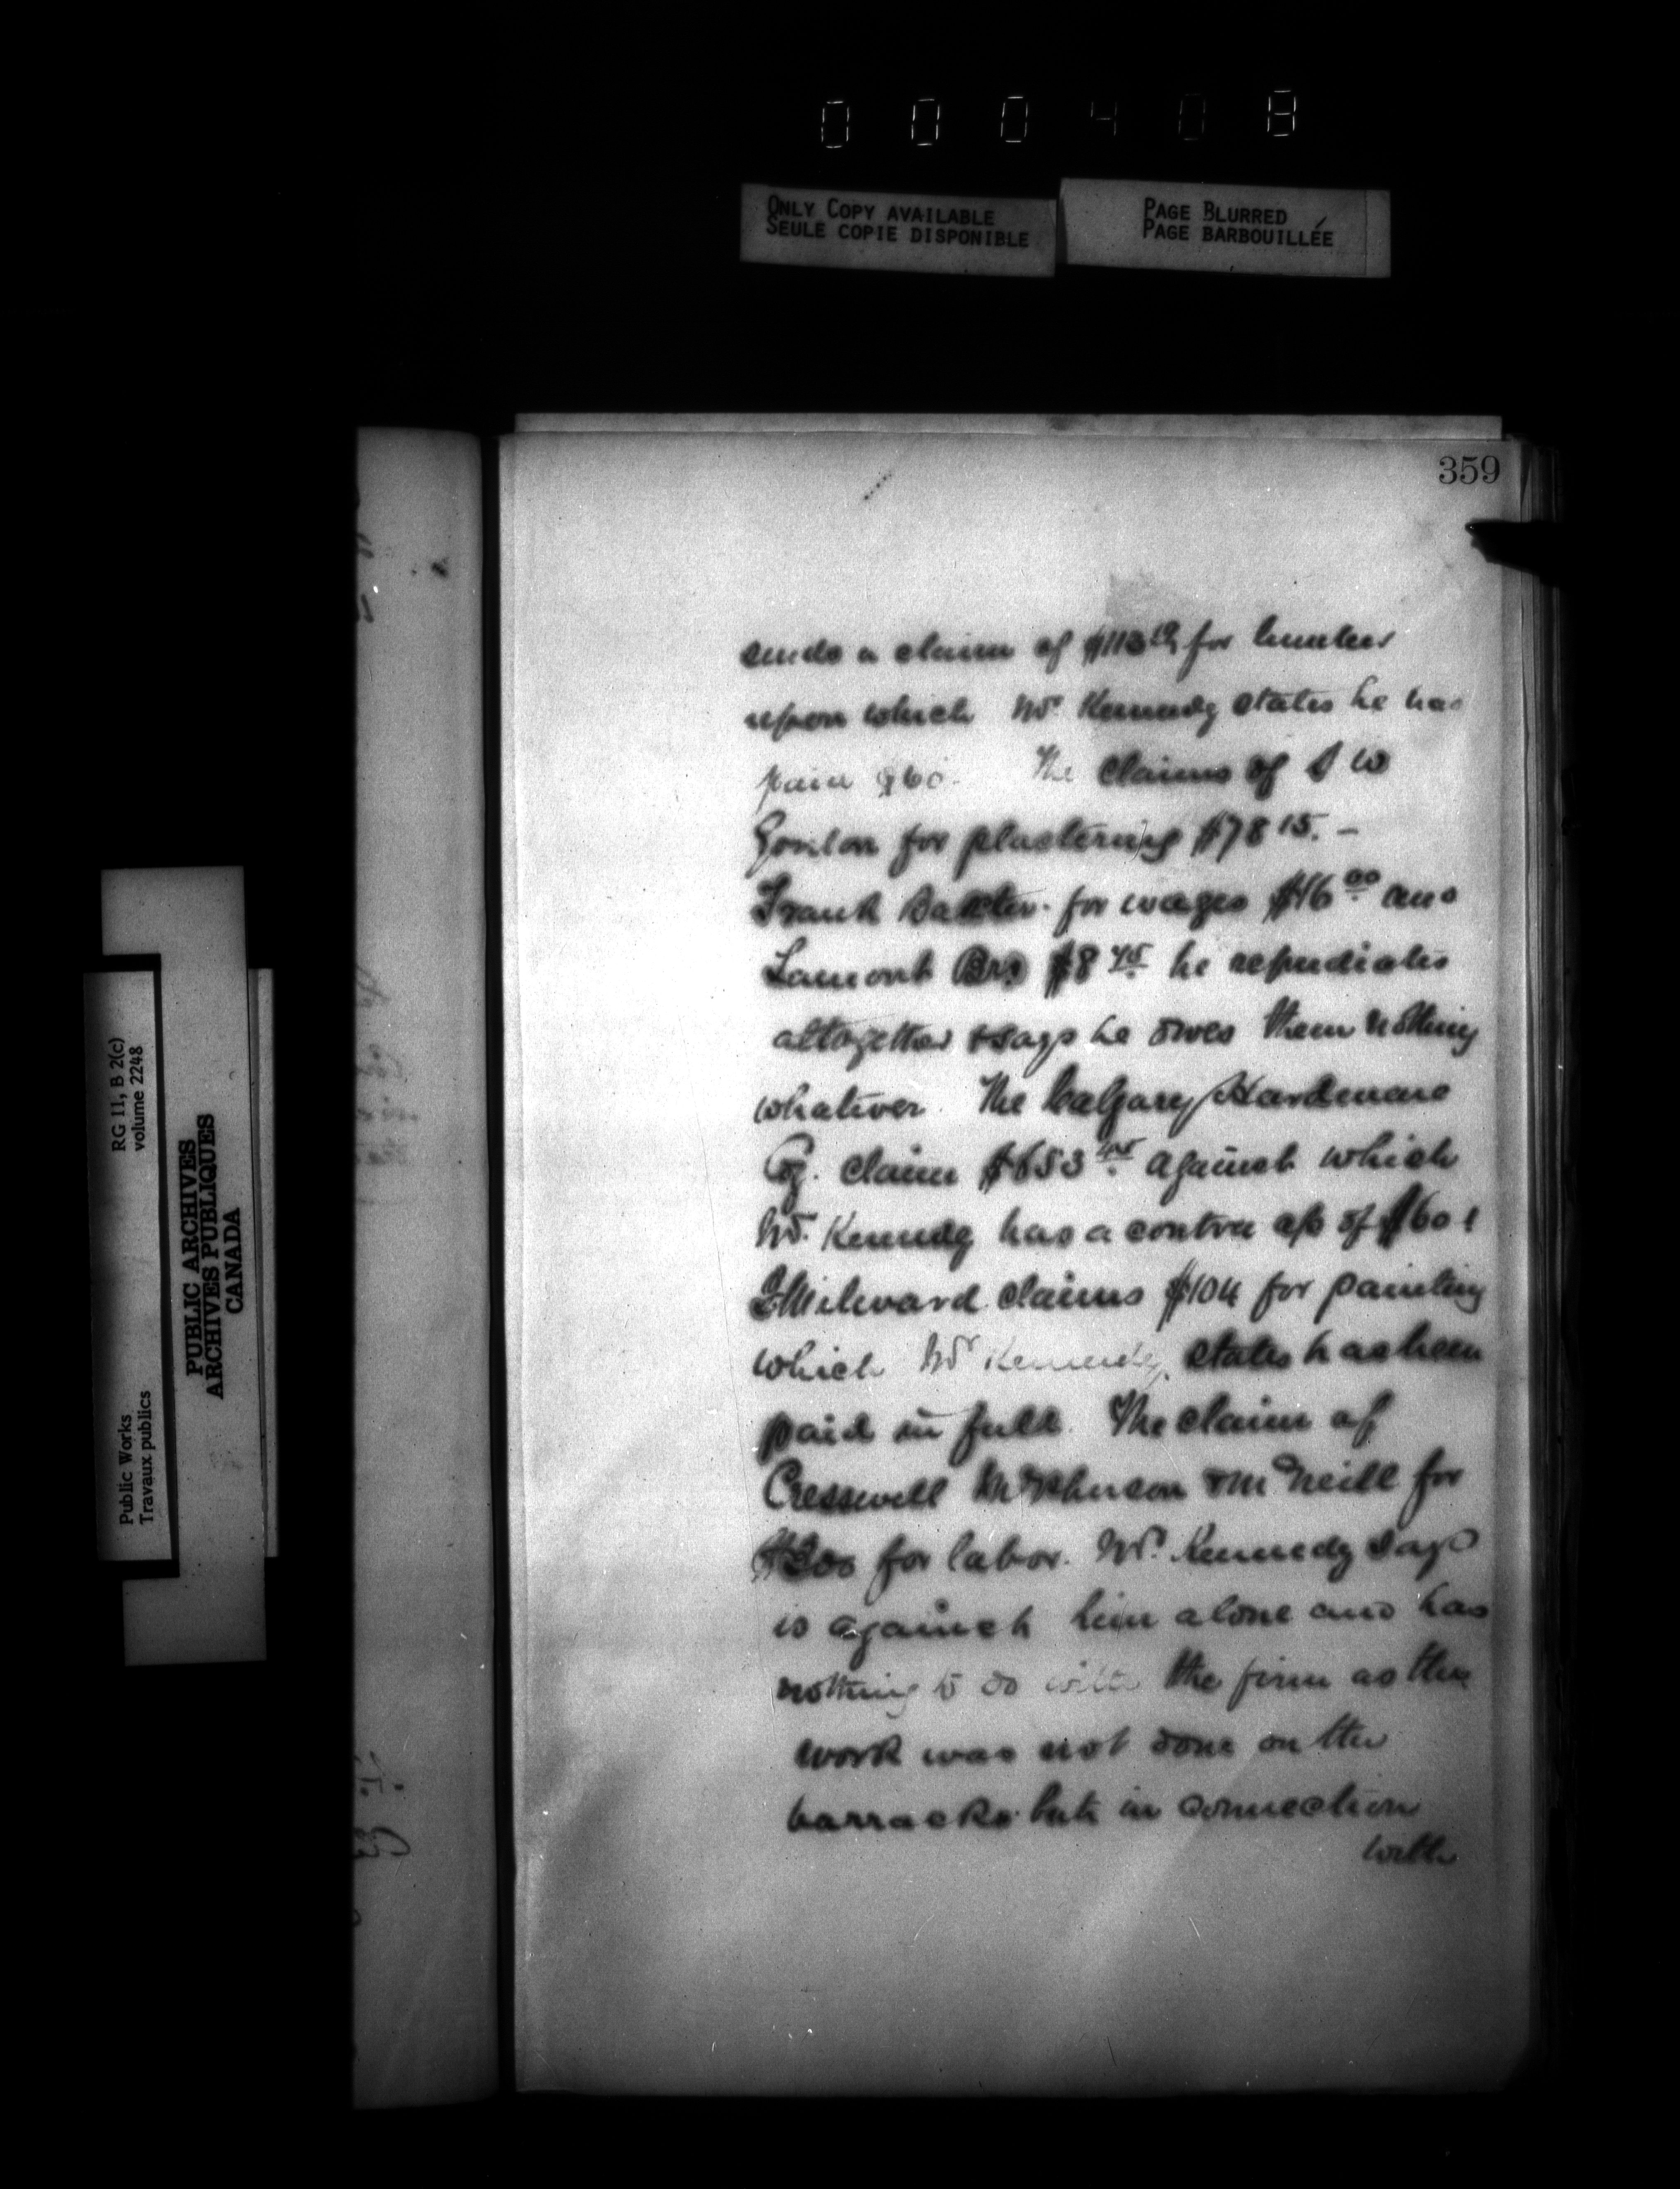 000408
ONLY COPY AVAILABLE
SEULE COPIE DISPONIBLE
PAGE BLURRED
PAGE BARBOUILLÉE
359
sends a claim of for lumber
upon which Mr Kennedy states he has
paid $60. The claims of S W
Gordon for plastering $78 15. –
Frank Baxter for wages $46 00 and
Lamont Bros $8 45 he repudiates
altogether & says he owes them nothing
whatever. The Calgary Hardware
Coy. claim $653 45 against which
Mr. Kennedy has a contra a/c of $601
Milward claims $104 for painting
which Mr Kennedy states has been
paid in full. The claim of
Cresswell McPherson & McNeill for
$200 for labor. Mr. Kennedy says
is against him alone and has
nothing to do with the firm as the
work was not done on the
barracks but in connection
with
Public Works
Travaux publics
RG 11, B 2(c)
volume 2248
PUBLIC ARCHIVES
ARCHIVES PUBLIQUES
CANADA